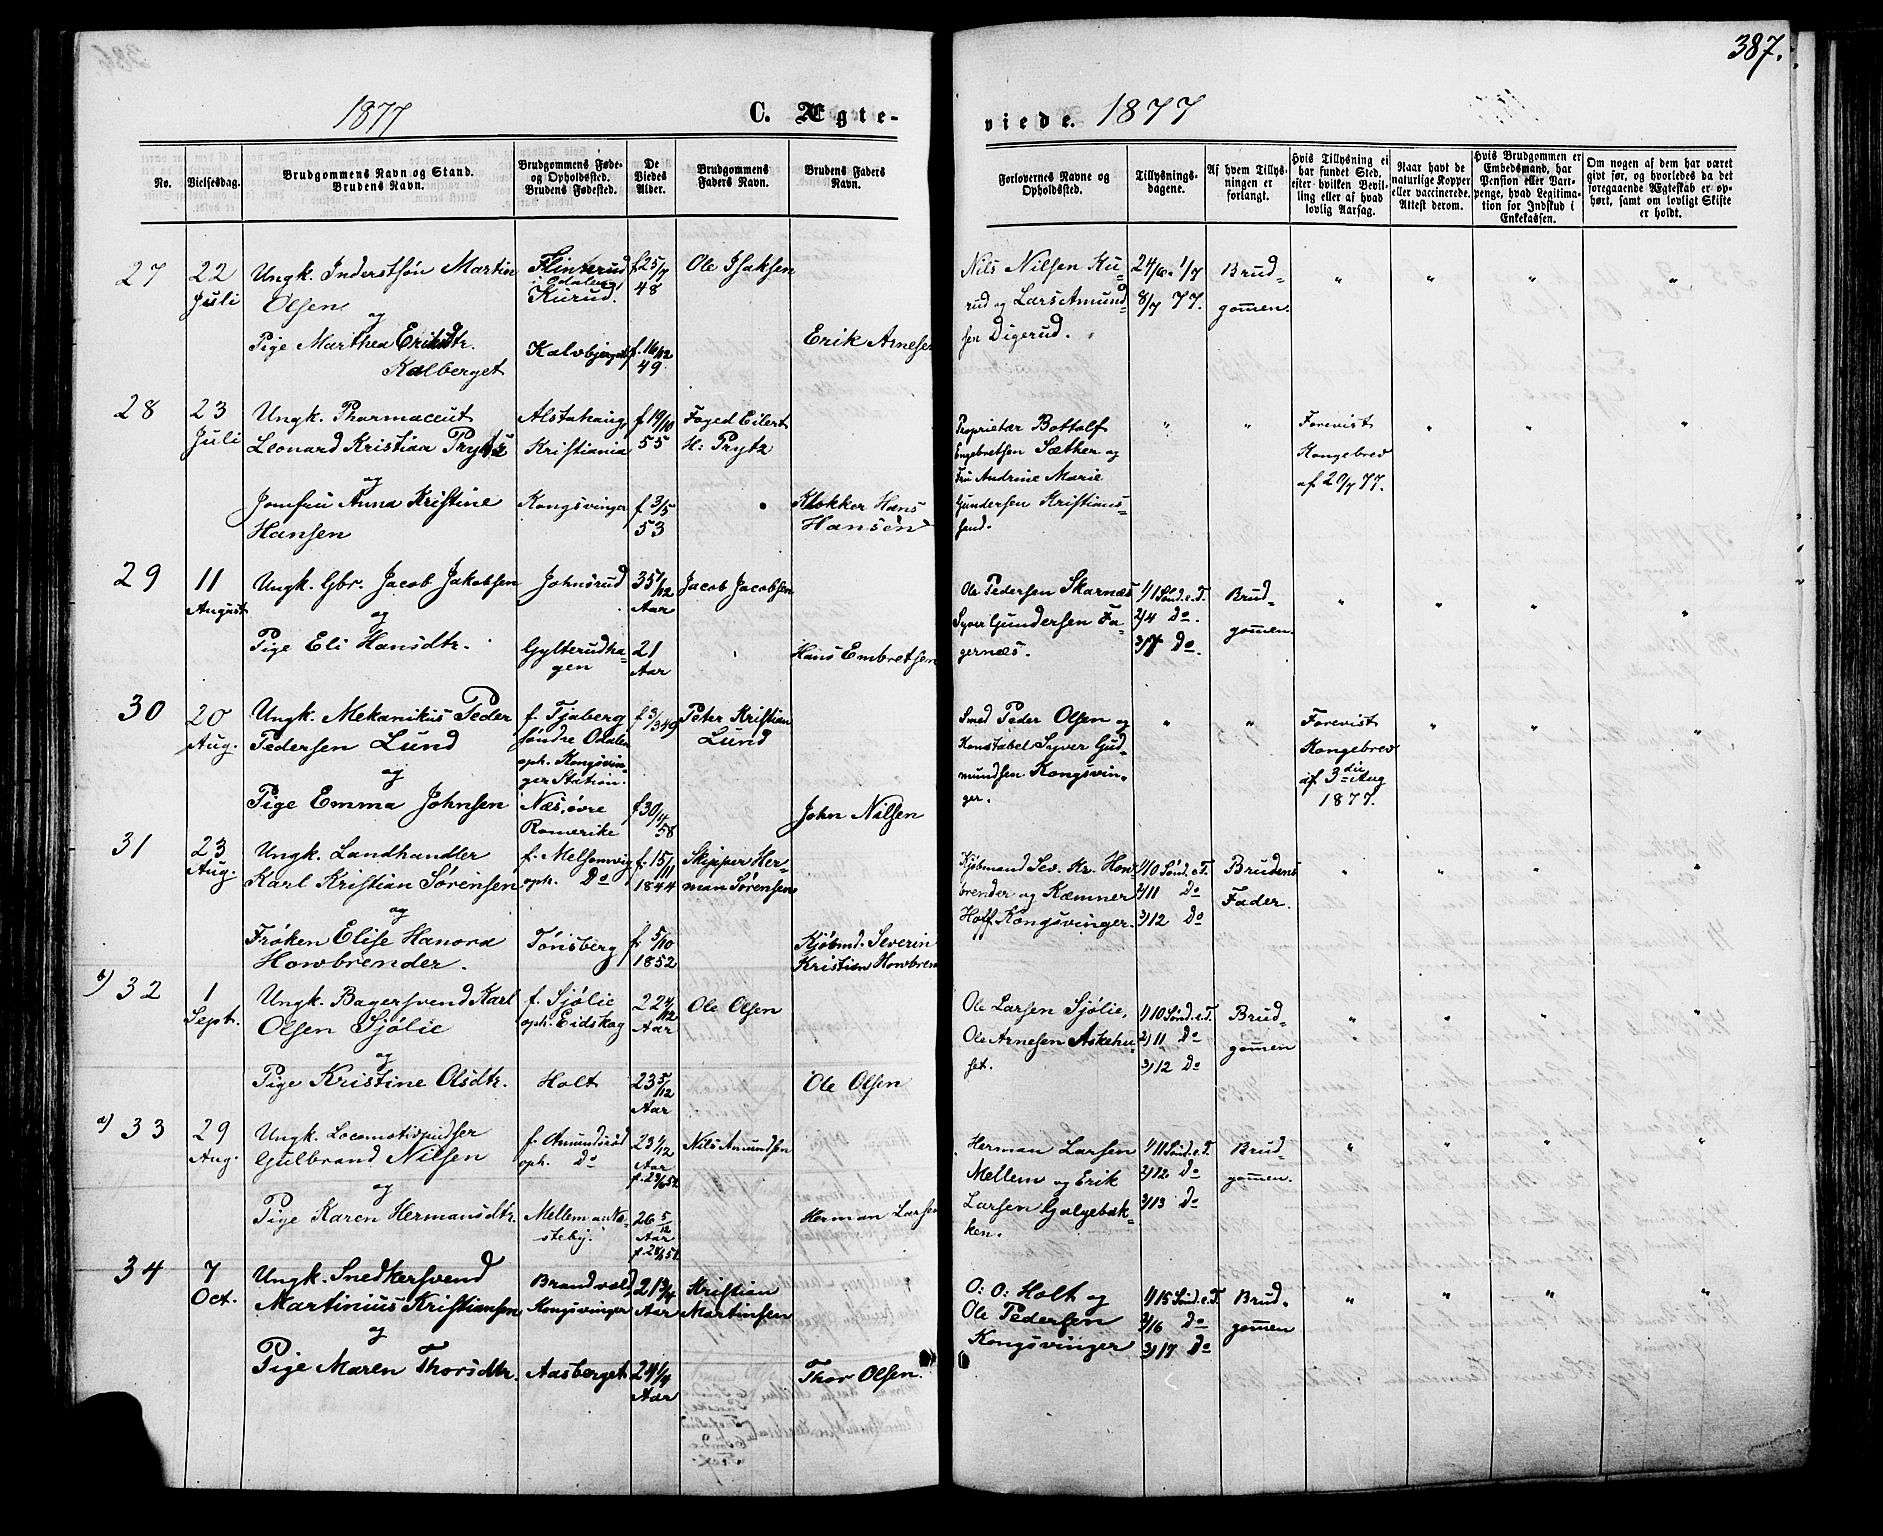 387.
1877
C. Ægte-
viede. 1877
No.
Vielsesdag.
Brudgommens Navn og Stand.
Brudens Navn.
Brudgommens Føde-
og Opholdssted.
Brudens Fødested.
De
Viedes
Alder.
Brudgommens
Faders Navn.
Brudens Faders
Navn.
Forlovernes Navne og
Opholdssted.
Tillysnings-
dagene.
Af hvem Tillys-
ningen er
forlangt.
Hvis Tillysning ei
har fundet Sted,
efter hvilken Bevil-
ling eller af hvad
lovlig Aarsag.
Naar havt de
naturlige Kopper
eller vaccinerede.
Attest derom.
Hvis Brudgommen er
Embedsmand, har
Pension eller Vart-
penge, hvad Legitima-
tion for Indskud i
Enkekassen.
Om nogen af dem har været
givt før, og hvorledes da det
foregaaende Ægteskab er op-
hørt, samt om lovligt Skifte
er holdt.
27
22
Juli
Ungk. Inderstsøn Martin
Olsen
og
Pige Marthea Eriksdtr.
Kalberget
Flinterud
i Odalen
Kurud.
Kalvbjerget
f. 25/7
48
f. 16/12
49.
Ole Isaksen
Erik Arnesen
Nils Nilsen Ku-
rud og Lars Amund
sen Digerud.
24/6 1/7
8/7 77.
Brud-
gommen.
" " " "
28
23
Juli
Ungk. Pharmaceut
Leonard Kristian Prytz
og
Jomfru Anna Kristine
Hansen
Alstahaug,
Kristiania
Kongsvinger
f 19/10
55
f 3/5
53
Foged Eilert
H: Prytz
Klokker Hans
Hansen
Proprietær Bottolf
Engebretsen Sæther og
Fru Andrine Marie
Gundersen Kristians-
sand.
" "
Forevist
Kongebrev
af 20/7 77.
" " "
29
11
August
Ungk. Gbr. Jacob Jakobsen
og
Pige Eli Hansdtr.
Johnsrud
Gylterudha-
gen
35 1/12
Aar
21
Aar
Jacob Jacobsen
Hans Embretsen
Ole Pedersen Skarnæs
Syver Gundersen Fa-
gernæs.
1/1 Sønd. e. T.
2/4 Do.
3/7 Do.
Brud-
gommen.
" " " "
30
20
Aug.
Ungk. Mekanikus Peder
Pedersen Lund
og
Pige Emma Johnsen
f. Tjaberg
søndre Odalen
oph. Kongsvin-
ger Station.
Næs, øvre
Romerike
f 3/3 49
f. 30/4
58
Peter Kristian
Lund
John Nilsen
Smed Peder Olsen og
Konstabel Syver Gud-
mundsen Kongsvin-
ger.
" "
Forevist
Kongebrev
af 3die Aug
1877.
" " "
31
23
Aug.
Ungk. Landhandler
Karl Kristian Sørensen
og
Frøken Elise Hanora
Howbrender.
f. Melsomvig
oph. Do
Tønsberg
f. 15/11
1844
f. 5/10
1852
Skipper Her-
man Sørensen
Kjøbmd. Severin
Kristian Howbren
Kjøbmand Sev. Kr. How-
brender og Kæmner
Hoff Kongsvinger.
1/10 Sønd. e. T.
2/11 Do
3/12 Do
Brudens
Fader.
" " " "
b) 32
1
Sept.
Ungk. Bagersvend Karl
Olsen Sjølie
og
Pige Kristine Olsdtr.
f. Sjølie
oph. Eidskog
Holt
22 4/12
Aar
23 5/12
Aar
Ole Olsen
Ole Olsen
Ole Larsen Sjølie,
Ole Arnesen Askehu-
set.
1/10 Sønd. e. T.
2/11 Do
3/12 Do
Brud-
gommen
" " " "
a) 33
29
Aug.
Ungk. Locomotivpudser
Gulbrand Nilsen
og
Pige Karen Hermansdtr.
f. Amundsrød
oph. Do
Mellem
steby.
23 1/12
Aar
26 5/12
Aar
Nils Amundsen
Herman Larsen
Herman Larsen
Mellem og Erik
Larsen Galgebak-
ken.
1/11 Sønd. e. T.
2/12 Do
3/13 Do
Brud-
gommen.
" " " "
34
7
Oct.
Ungk. Snedkersvend
Martinius Kristiansen
og
Pige Maren Thorsdtr.
Brandval,
Kongsvinger
Aasberget
21 3/4
Aar
24 1/4
Aar
Kristian
Martinsen
Thor Olsen.
O: O: Holt og
Ole Pedersen
Kongsvinger
1/15 Sønd. e. T.
2/16 Do
3/17 Do
Brud-
gommen
" " " "